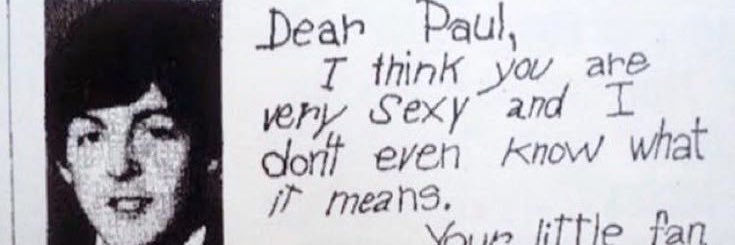 Dear Paul,
I think you are
very sexy and I
don't even know what
it means.
Your little fan